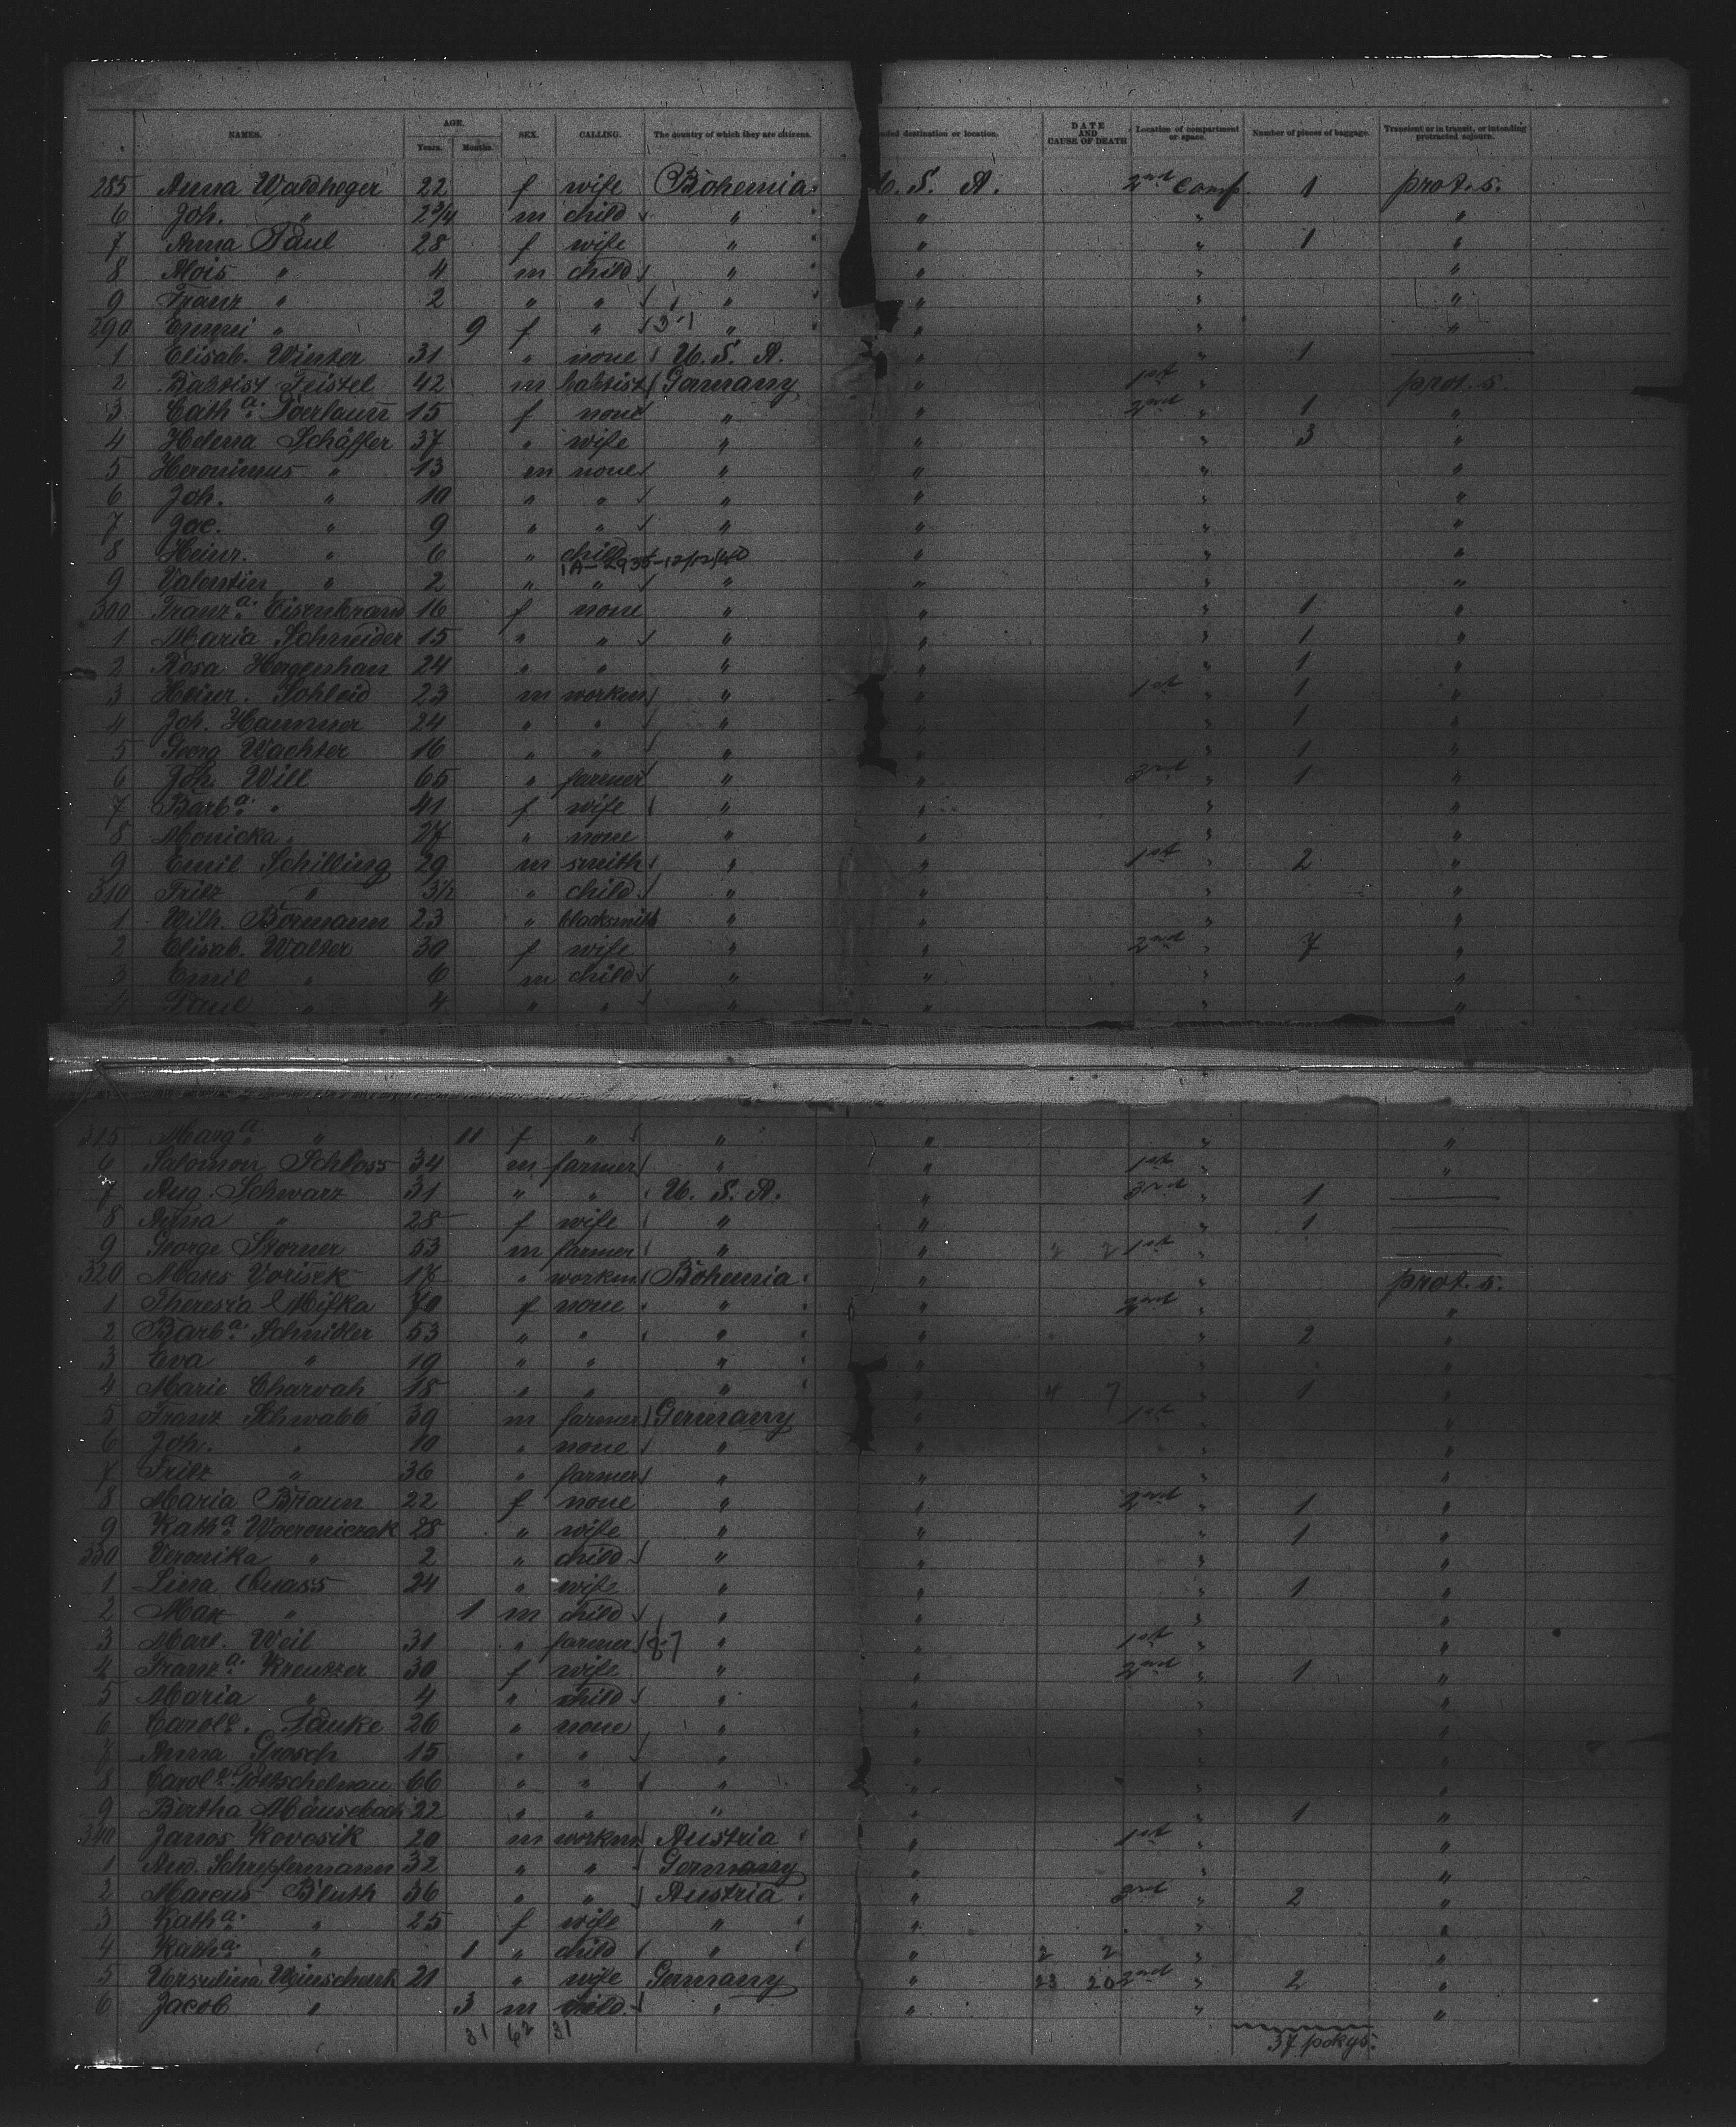 NAMES. AGE. Years. Months. SEX. CALLING. The country of which they are citizens. ded destination or location. DATE AND CAUSE OF DEATH Location of compartment or space. Number of pieces of baggage. Transient or in transit, or intending protracted sojourn.
285 Anna Waldheger 22 f wife Bohemia U. S. A. 2nd comp 1 prot. s.
6 Joh. " 2 3/4 m child " " " "
7 Anna Paul 28 f wife " " " 1 "
8 Alois " 4 m child " " " "
9 Franz " 2 " " " " " "
290 Emmi " 9 f " " " " "
1 Elisab. Winter 31 " none U. S. A. " " 1
2 Baptist Feistel 42 m Germany " 1st " prot. s.
3 Cath a. 15 f none " " 2nd " 1 "
4 Helena Schäffer 37 " wife " " " 3 "
5 Heronimus " 13 m none " " " "
6 Joh. " 10 " " " " " "
7 Jac. " 9 " " " " " "
8 Heinr. " 6 " child " " "
9 Valentin " 2 " " " " " "
300 Franz a. Eisenbrand 16 f none " " " 1 "
1 Maria Schneider 15 " " " " " 1 "
2 Rosa Hergenhan 24 " " " " " 1 "
3 Heinr. Schleid 23 m workm " " 1st " 1 "
4 Joh. Hammer 24 " " " " " 1 "
5 Georg Wachter 16 " " " " " 1 "
6 Joh. Will 65 " farmer " " 3rd " 1 "
7 Barb a. " 41 f wife " " " "
8 Monicka " 27 " none " " " "
9 Emil Schilling 29 m smith " " 1st " 2 "
310 Fritz " 3 1/2 " child " " " "
1 Wilh. Bormann 23 " blacksmith " " " "
2 Elisab. Walter 30 f wife " " 2nd " 7 "
3 Emil " 6 m child " " " "
4 Paul " 4 " " " " " "
315 Marg a " 11 f " " " " "
6 Salomon Schloss 34 m farmer " " 1st " "
7 Aug. Schwarz 31 " " U. S. A. " 3rd " 1
8 Anna " 28 f wife " " " 1
9 George Storner 53 m farmer " " 2 2 1st "
320 Mates Vorisek 17 " workm Bohemia " " prot. s.
1 Theresia Mifka 70 f none " " 2nd " "
2 Barb a. Schmidler 53 " " " " " 2 "
3 Eva " 19 " " " " " "
4 Marie Charvah 18 " " " " 4 7 " 1 "
5 Franz Schwabb 39 m farmer Germany " 1st " "
6 Joh. " 10 " none " " " "
7 Fritz " 36 " farmer " " " "
8 Maria Braun 22 f none " " 2nd " 1 "
9 Kath a. Woeroniczak 28 " wife " " " 1 "
330 Veronika " 2 " child " " " "
1 Lina Quass 24 " wife " " " 1 "
2 Max " 1 m child " " " "
3 Weil 31 " farmer " " 1st " "
4 Franz a. Kreutzer 30 f wife " " 2nd " 1 "
5 Maria " 4 " child " " " "
6 Carol e. Pauke 26 " none " " " "
7 Anna Grosch 15 " " " " " "
8 66 " " " " " "
9 Bertha Mäusebach 22 " " " " " 1 "
340 Janos Kovosik 20 m workm Austria " 1st " "
1 And. Schrepfermann 32 " " Germany " " "
2 Marcus Bluth 36 " " Austria " 3rd " 2 "
3 Kath a. " 25 f wife " " " "
4 Kath a. " 1 " child " " 2 2 " "
5 Ursulina Weinschenk 21 " wife Germany " 23 20 2nd " 2 "
6 Jacob " 3 m child " " " "
31 62 31
37 pckgs.